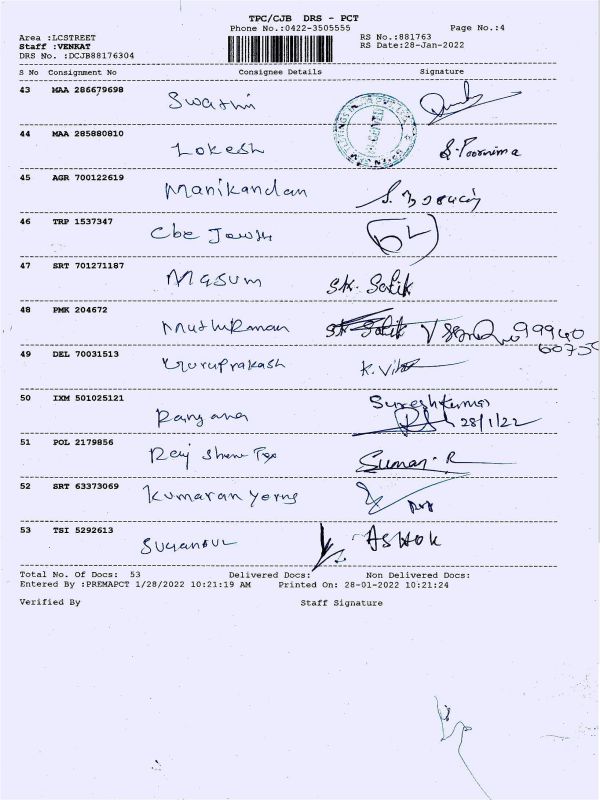 TPC/CJB DRS - PCT
Phone No.:0422-3505555 Page No.:4
Area :LCSTREET RS No.:881763
Staff :VENKAT RS Date:28-Jan-2022
DRS No. :DCJB88176304
S No Consignment No Consignee Details Signature
43 MAA 286679698
Swathi
44 MAA 285880810
Lokesh S. Poornima
45 AGR 700122619
Manikandan
46 TRP 1537347
Cbe
47 SRT 701271187
Masum SK. Salik
48 PMK 204672
SK Salik 99940
60755
49 DEL 70031513
Guruprakash K.
50 IXM 501025121 Sureshkumar
Ranjana 28/1/22
51 POL 2179856
Raj Suman. R
52 SRT 63373069
Kumaran
53 TSI 5292613
ASHOK
Total No. Of Docs: 53 Delivered Docs: Non Delivered Docs:
Entered By :PREMAPCT 1/28/2022 10:21:19 AM Printed On: 28-01-2022 10:21:24
Verified By Staff Signature